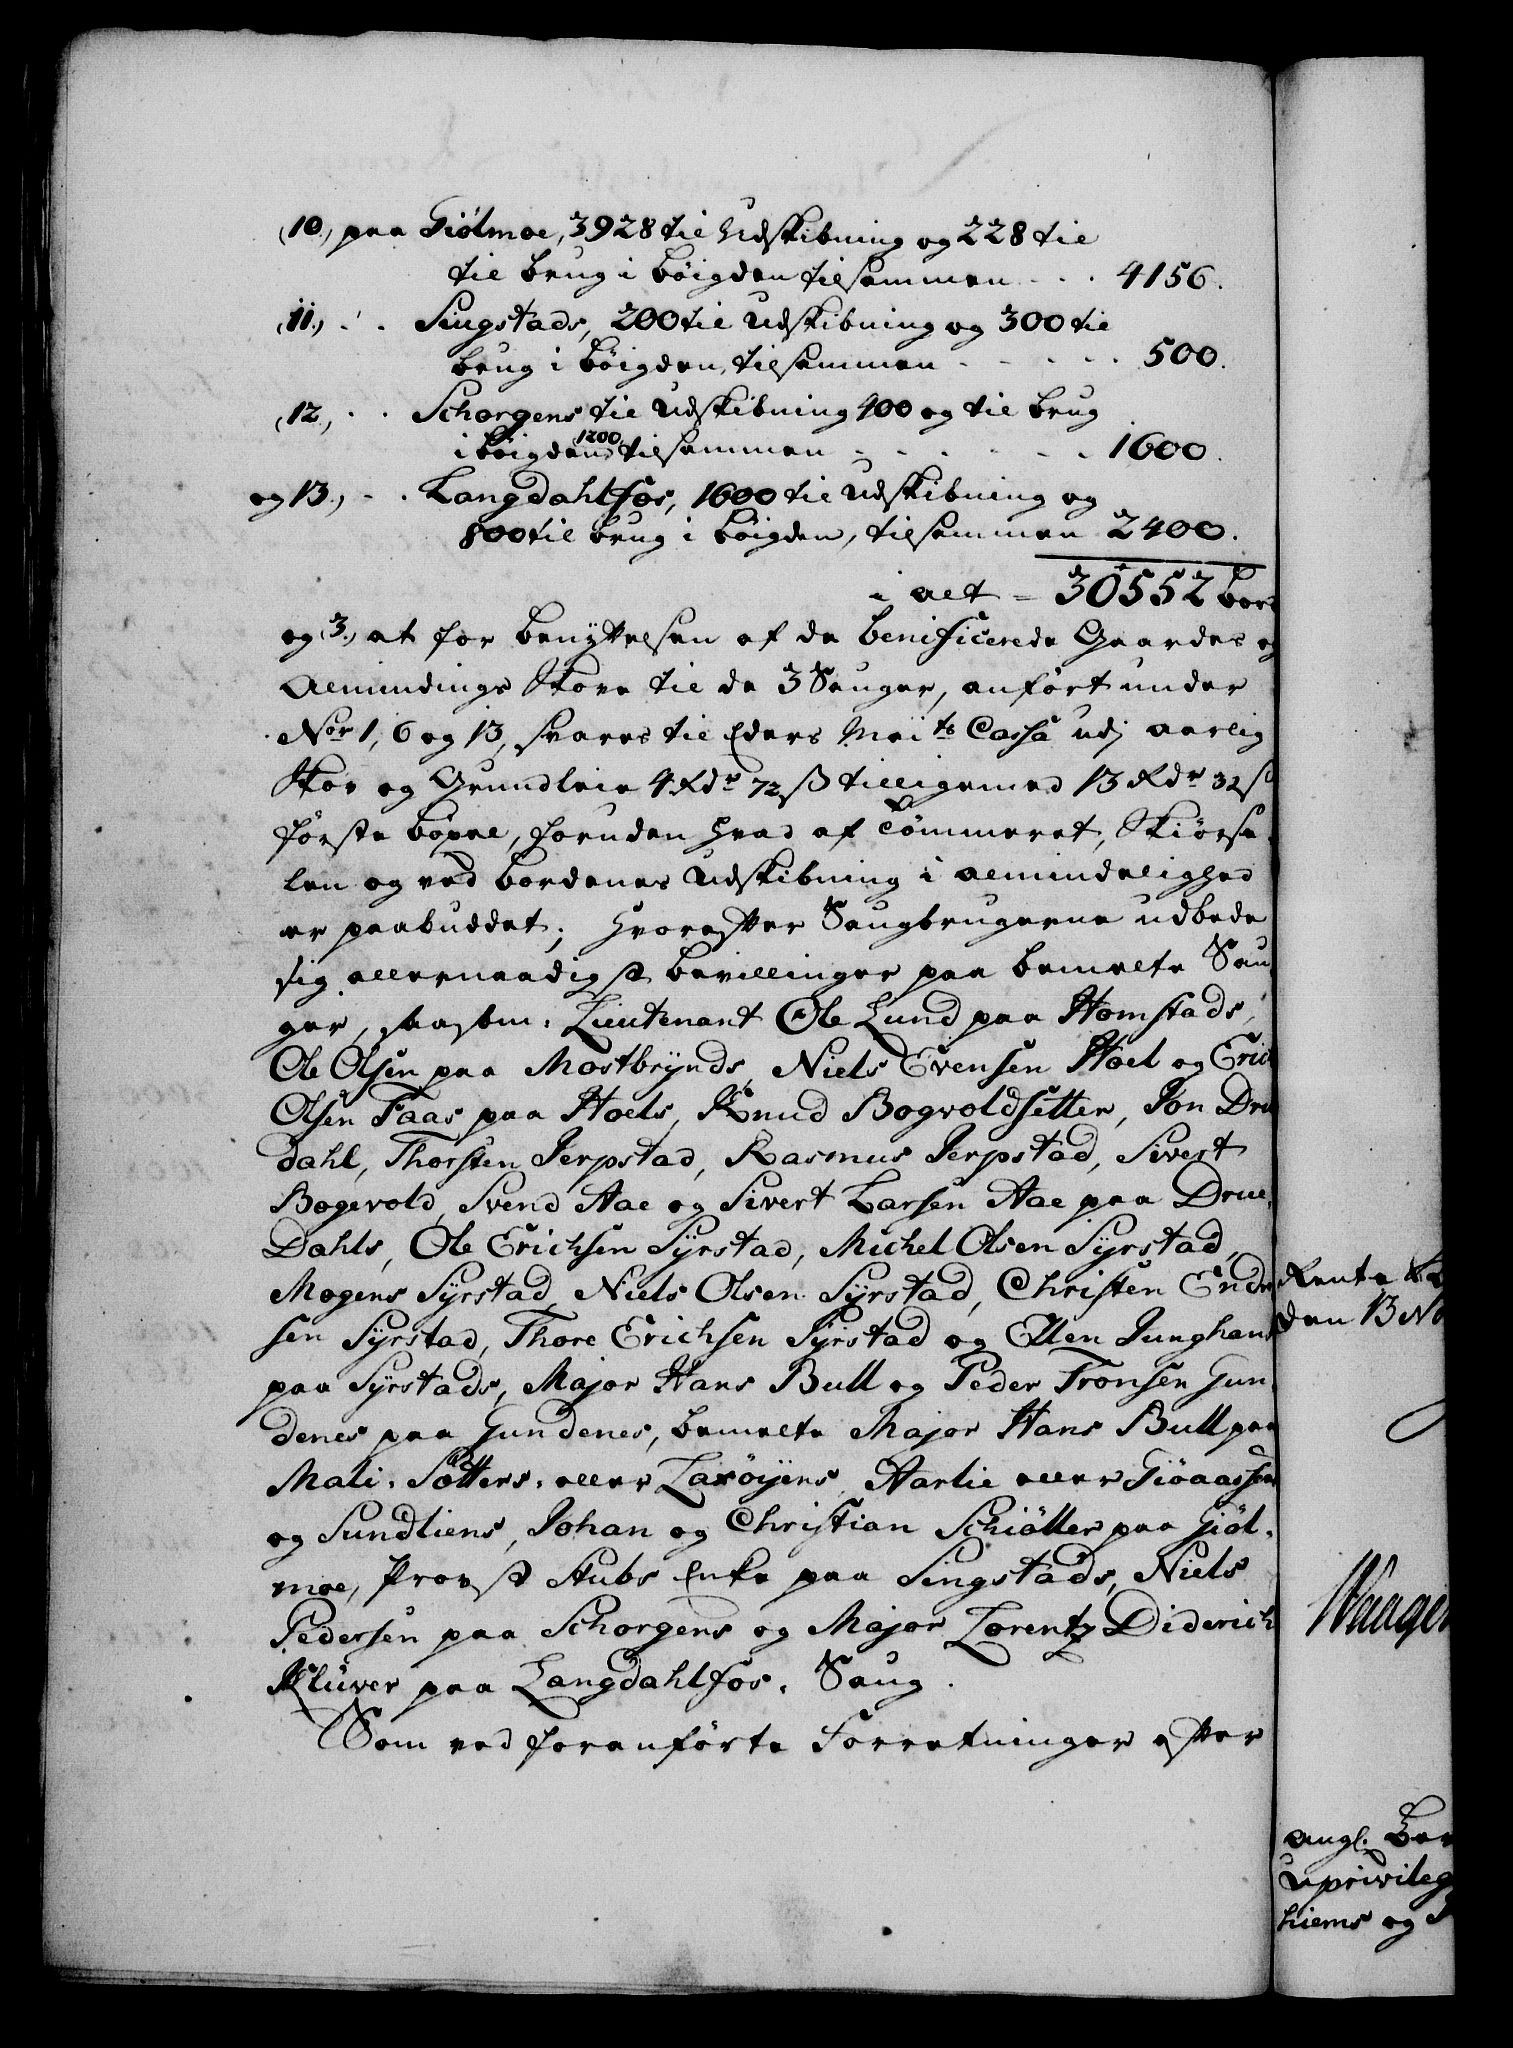 (10.) paa Giölmoe, 3928 til Udskibning og 228 til
til brug i bøigden tilsammen . . . 4156.
(11.) . . Singstads, 200 til Udskibning og 300 til
brug i bøigden, tilsammen . . . . . 500.
(12.) . . Schorgens til Udskibning 400 og til brug
i bøigden 1200, tilsammen . . . . . . 1600.
og 13.) . . Langdahlfos, 1600 til Udskibning og
800 til brug i bøigden, tilsammen 2400.
i alt = 30552 bord
og (3.) at for benyttelsen af de benificerede Gaardes og
Almindings Skove til de 3 Sauger, anført under
Nor 1, 6 og 13, svares til Eders Maits Cassa udj aarlig
Skov og Grundleie 4 Rdr 72 ß tilligemed 13 Rdr 32 ß
første bøxel, foruden hvad af Tømmeret, Skiørse-
len og ved bordenes Udskibning i almindelighed
er paabuddet; hvorefter Saugbrugerne udbede
sig allernaadigst bevillinger paa bemelte Sau-
ger, saasom: Lieutenant Ole Lund paa Homstads,
Ole Olsen paa Mostbrynds, Niels Evensen Hoel og Erich
Olsen Faas paa Hoels, Knud Bogvoldsetter, Jon Drue
dahl, Thorsten Jerpstad, Rasmus Jerpstad, Sivert
Bogevold, Svend Aae og Sivert Larsen Aae paa Drue-
Dahls, Ole Erichsen Syrstad, Michel Olsen Syrstad,
Mogens Syrstad, Niels Olsen Syrstad, Christen Endre
sen Syrstad, Thore Erichsen Syrstad og Ellen Junghans
paa Syrstads, Major Hans Bull og Peder Tronsen Gun-
denes paa Gundenes, bemelte Major Hans Bull paa
Mali-Sætters- eller Laxöyens, Aarlie eller Giöaassens
og Sundliens, Johan og Christian Schiöller paa Giöl-
moe, Provst Stubs Enke paa Singstads, Niels
Pedersen paa Schorgens og Major Lorentz Diderich
Klüver paa Langdahlfos-Saug.
Som ved foranførte Forretninger efter
Rente
den 13 No
angl.
Upprivileg
hiems og